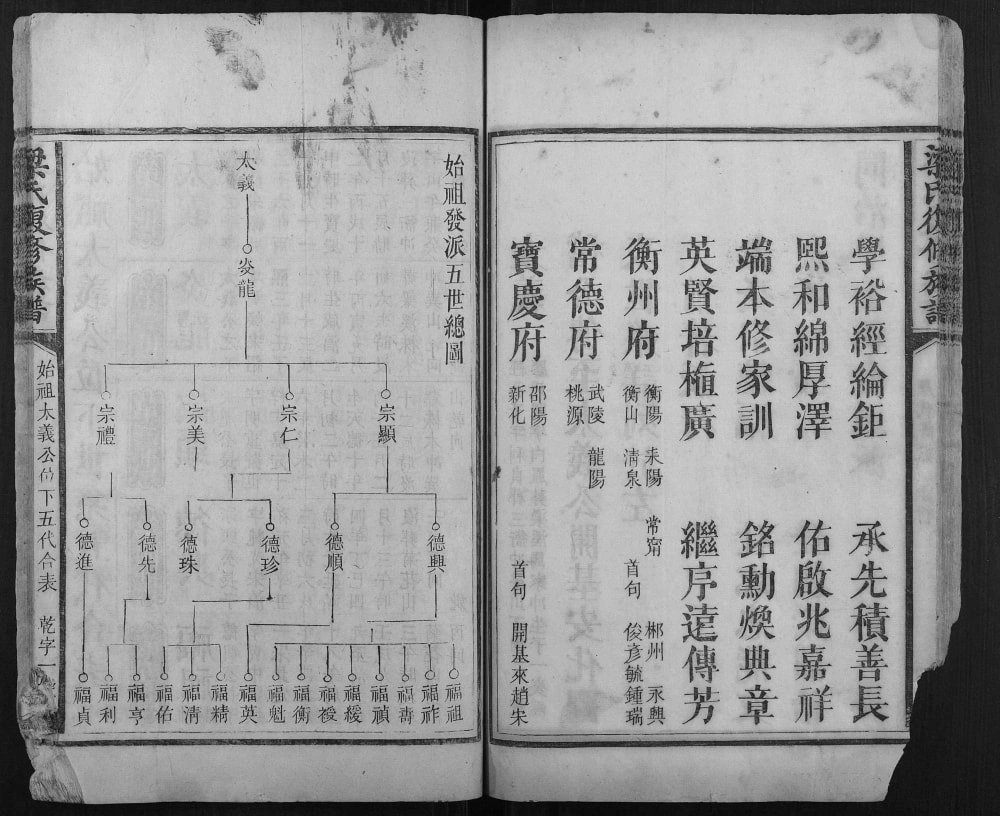 梁氏復修族譜
學裕經綸鉅 承先積善長
熙和綿厚澤 佑啟兆嘉祥
端本修家訓 銘勳煥典章
英賢培植廣 繼序遠傳芳
衡州府 衡陽 耒陽 常甯 郴州 永興
衡山 清泉 首句 俊彥毓鍾瑞
常德府 武陵 龍陽
桃源
寶慶府 邵陽
新化 首句 開基來趙宋
始祖發派五世總圖
太義
炎龍
宗顯 宗仁 宗美 宗禮
德興 德順 德珍 德珠 德先 德進
福祖 福祚 福壽 福禎 福緩 福授 福衡 福魁 福英 福精 福清 福佑 福亨 福利 福貞
梁氏復修族譜
始祖太義公位下五代合表 乾字一